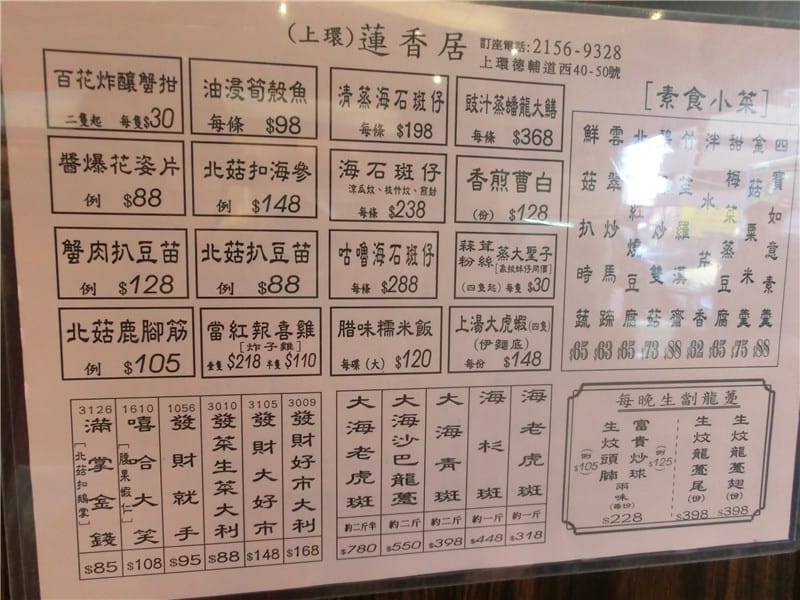 (上環)蓮香居
訂座電話:2156-9328
上環德輔道西40-50號
百花炸釀蟹拑
二隻起 每隻$30
油浸筍殼魚
每條 $98
清蒸海石斑仔
每條 $198
豉汁蒸蟠龍大鱔
每條 $368
醬爆花姿片
例 $88
北菇扣海參
例 $148
海石斑仔
涼瓜炆、枝竹炆、煎封
每條 $238
香煎曹白
(份) $128
蟹肉扒豆苗
例 $128
北菇扒豆苗
例 $88
咕嚕海石斑仔
每條 $288
蒜茸
粉絲
蒸大聖子
(四隻起) 每隻 $30
北菇鹿腳筋
例 $105
當紅報喜雞
[炸子雞]
壹隻$218 半隻$110
腊味糯米飯
每碟(大) $120
上湯大虎蝦(四隻)
(伊麵底)
每份 $148
[素食小菜]
鮮菇扒時蔬 $65
雲翠炒馬蹄 $63
紅燒豆腐 $65
炒雙菇 $73
竹笙羅漢齋 $88
泮水芹香 $62
甜梅菜蒸豆腐 $65
菇粟米羹 $75
四寶如意素羹 $88
3126 滿掌金錢 [北菇扣鵝掌] $85
1610 嘻哈大笑 [腰果蝦仁] $108
1056 發財就手 $95
3010 發菜生菜大利 $88
3105 發財大好市 $148
3009 發財好市大利 $168
大海老虎斑 約二斤半 $780
大海沙巴龍躉 約二斤 $550
大海青斑 約二斤 $398
海杉斑 約一斤 $448
海老虎斑 約一斤 $318
每晚生劏龍躉
生炆頭腩 (例)$105
富貴炒球 (例)$125
兩味(每份) $228
生炆龍躉尾(份) $398
生炆龍躉翅(份) $398